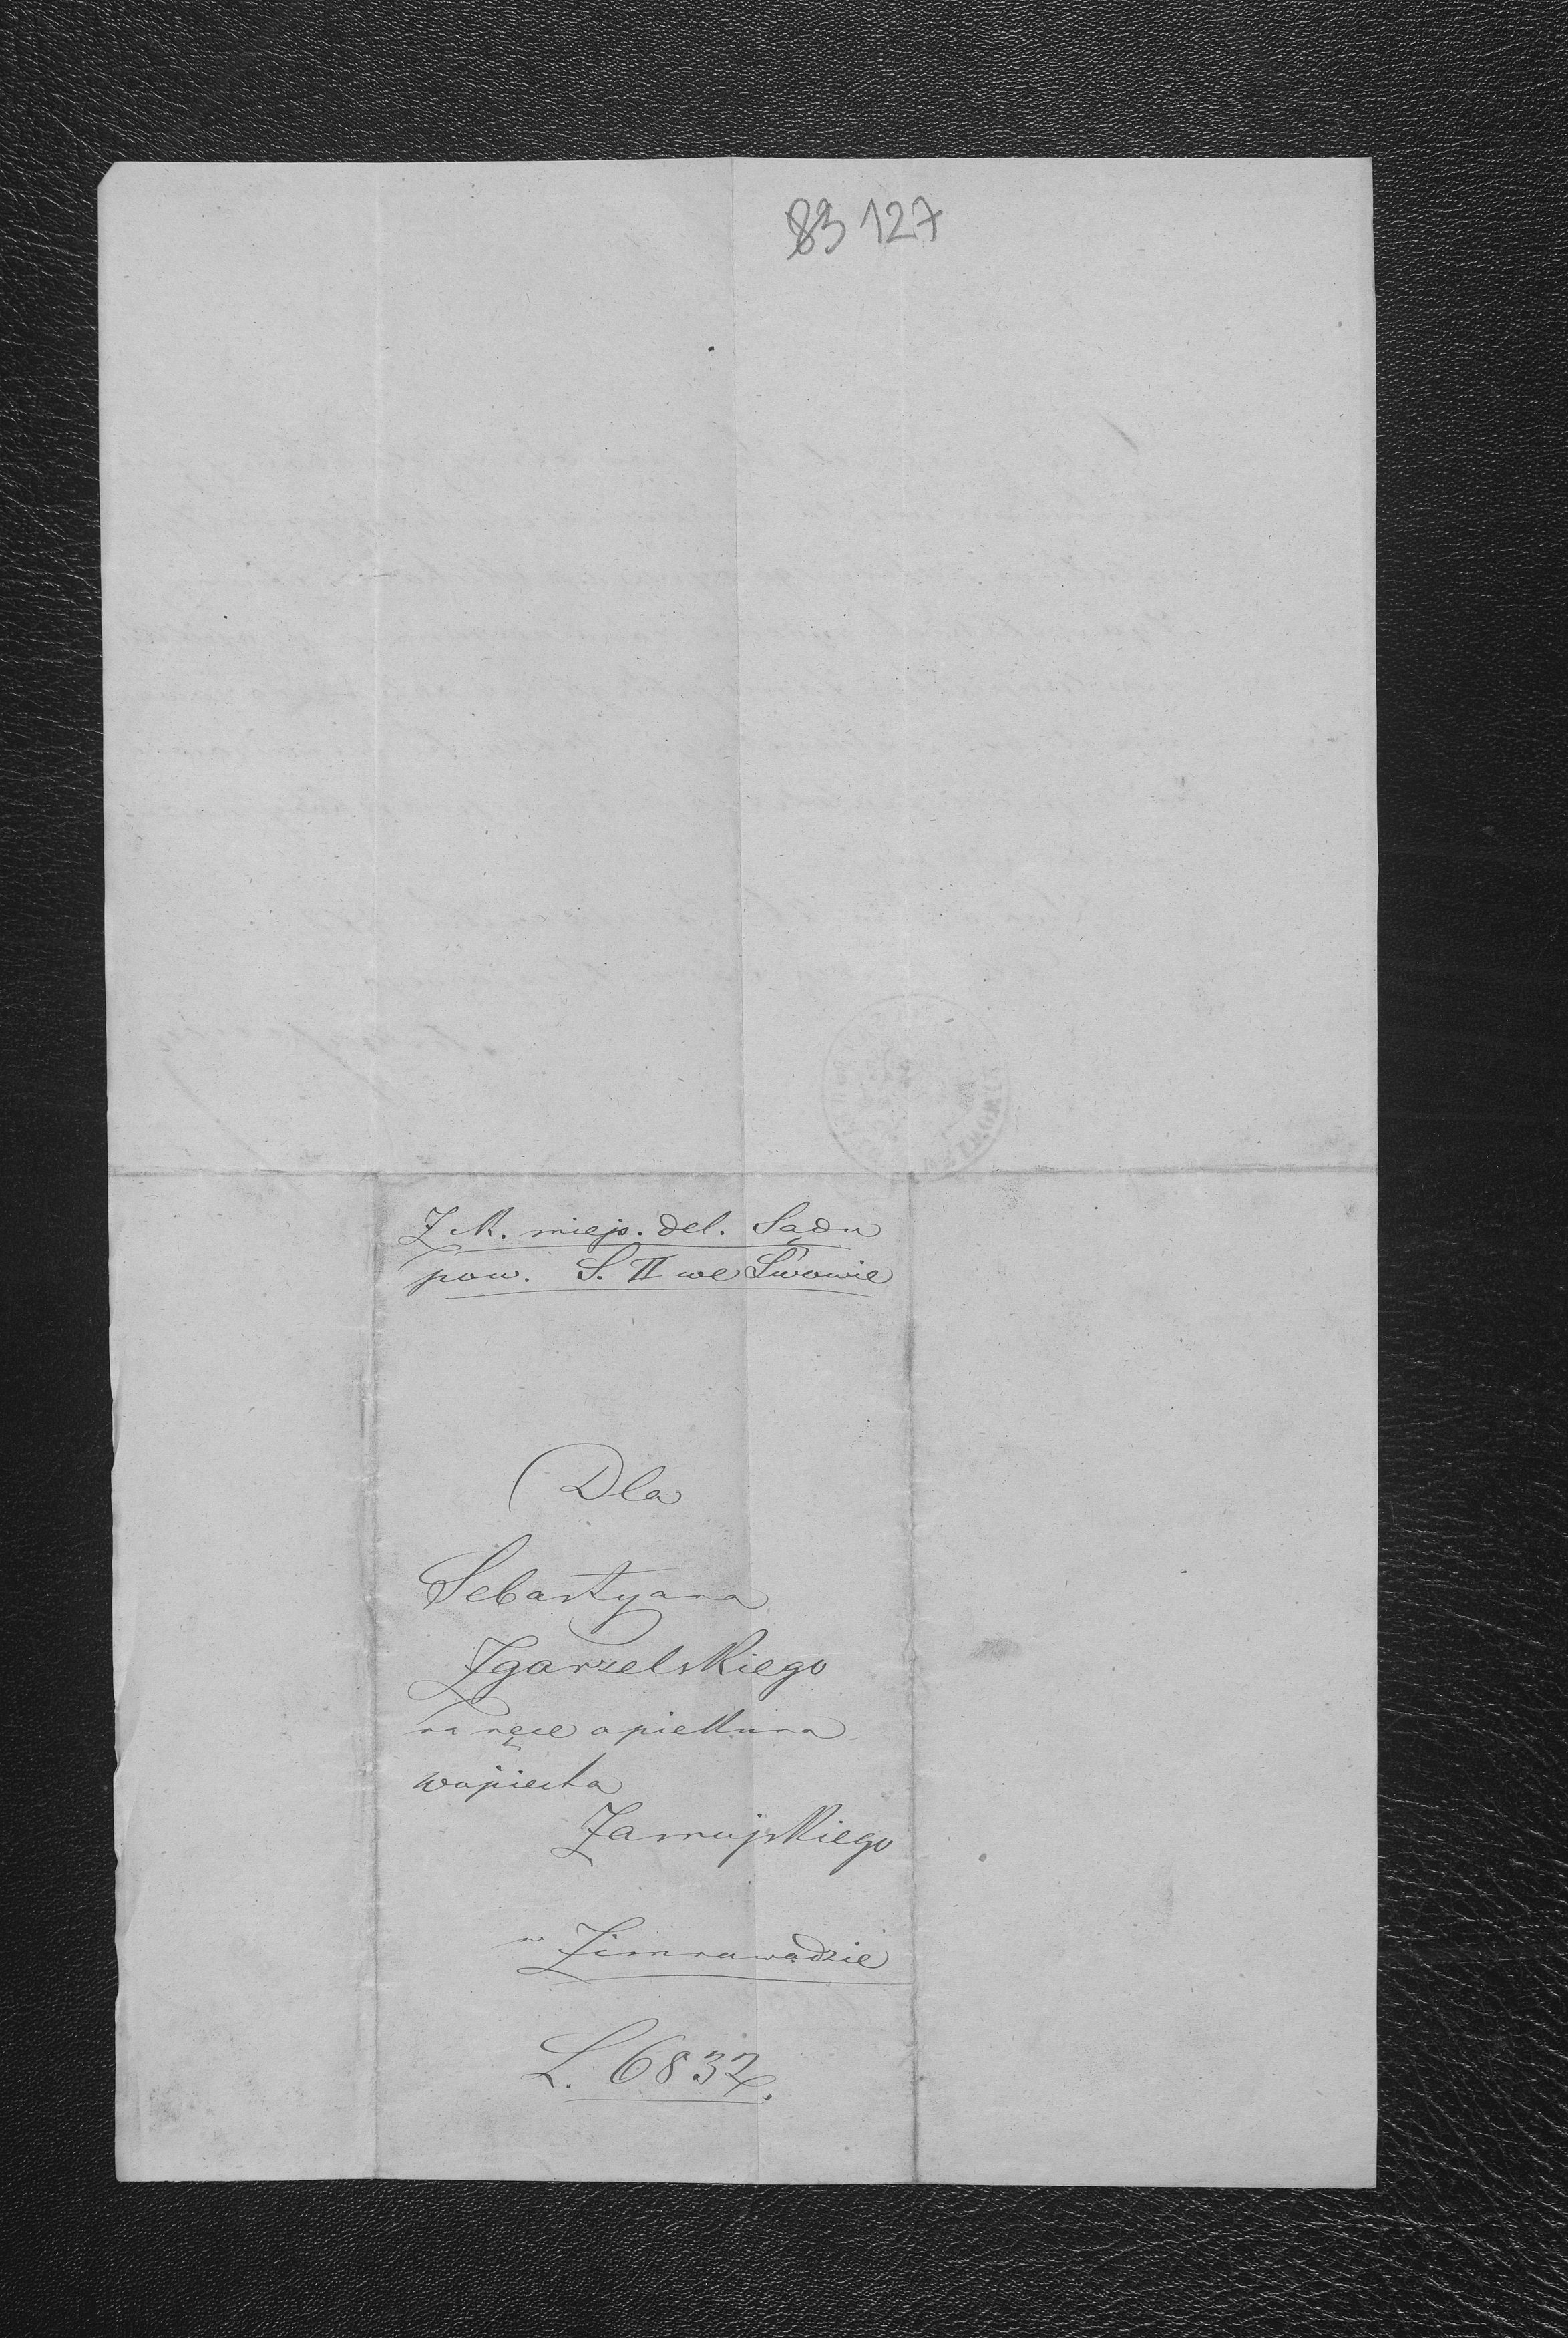 83 127
Z k. miejs. del. Sądu
pow. S. II we Lwowie
Dla
Sebastyana
Zgarzelskiego
na ręce opiekuna
Zamojskiego
w Zimnawodzie
L. 6832.